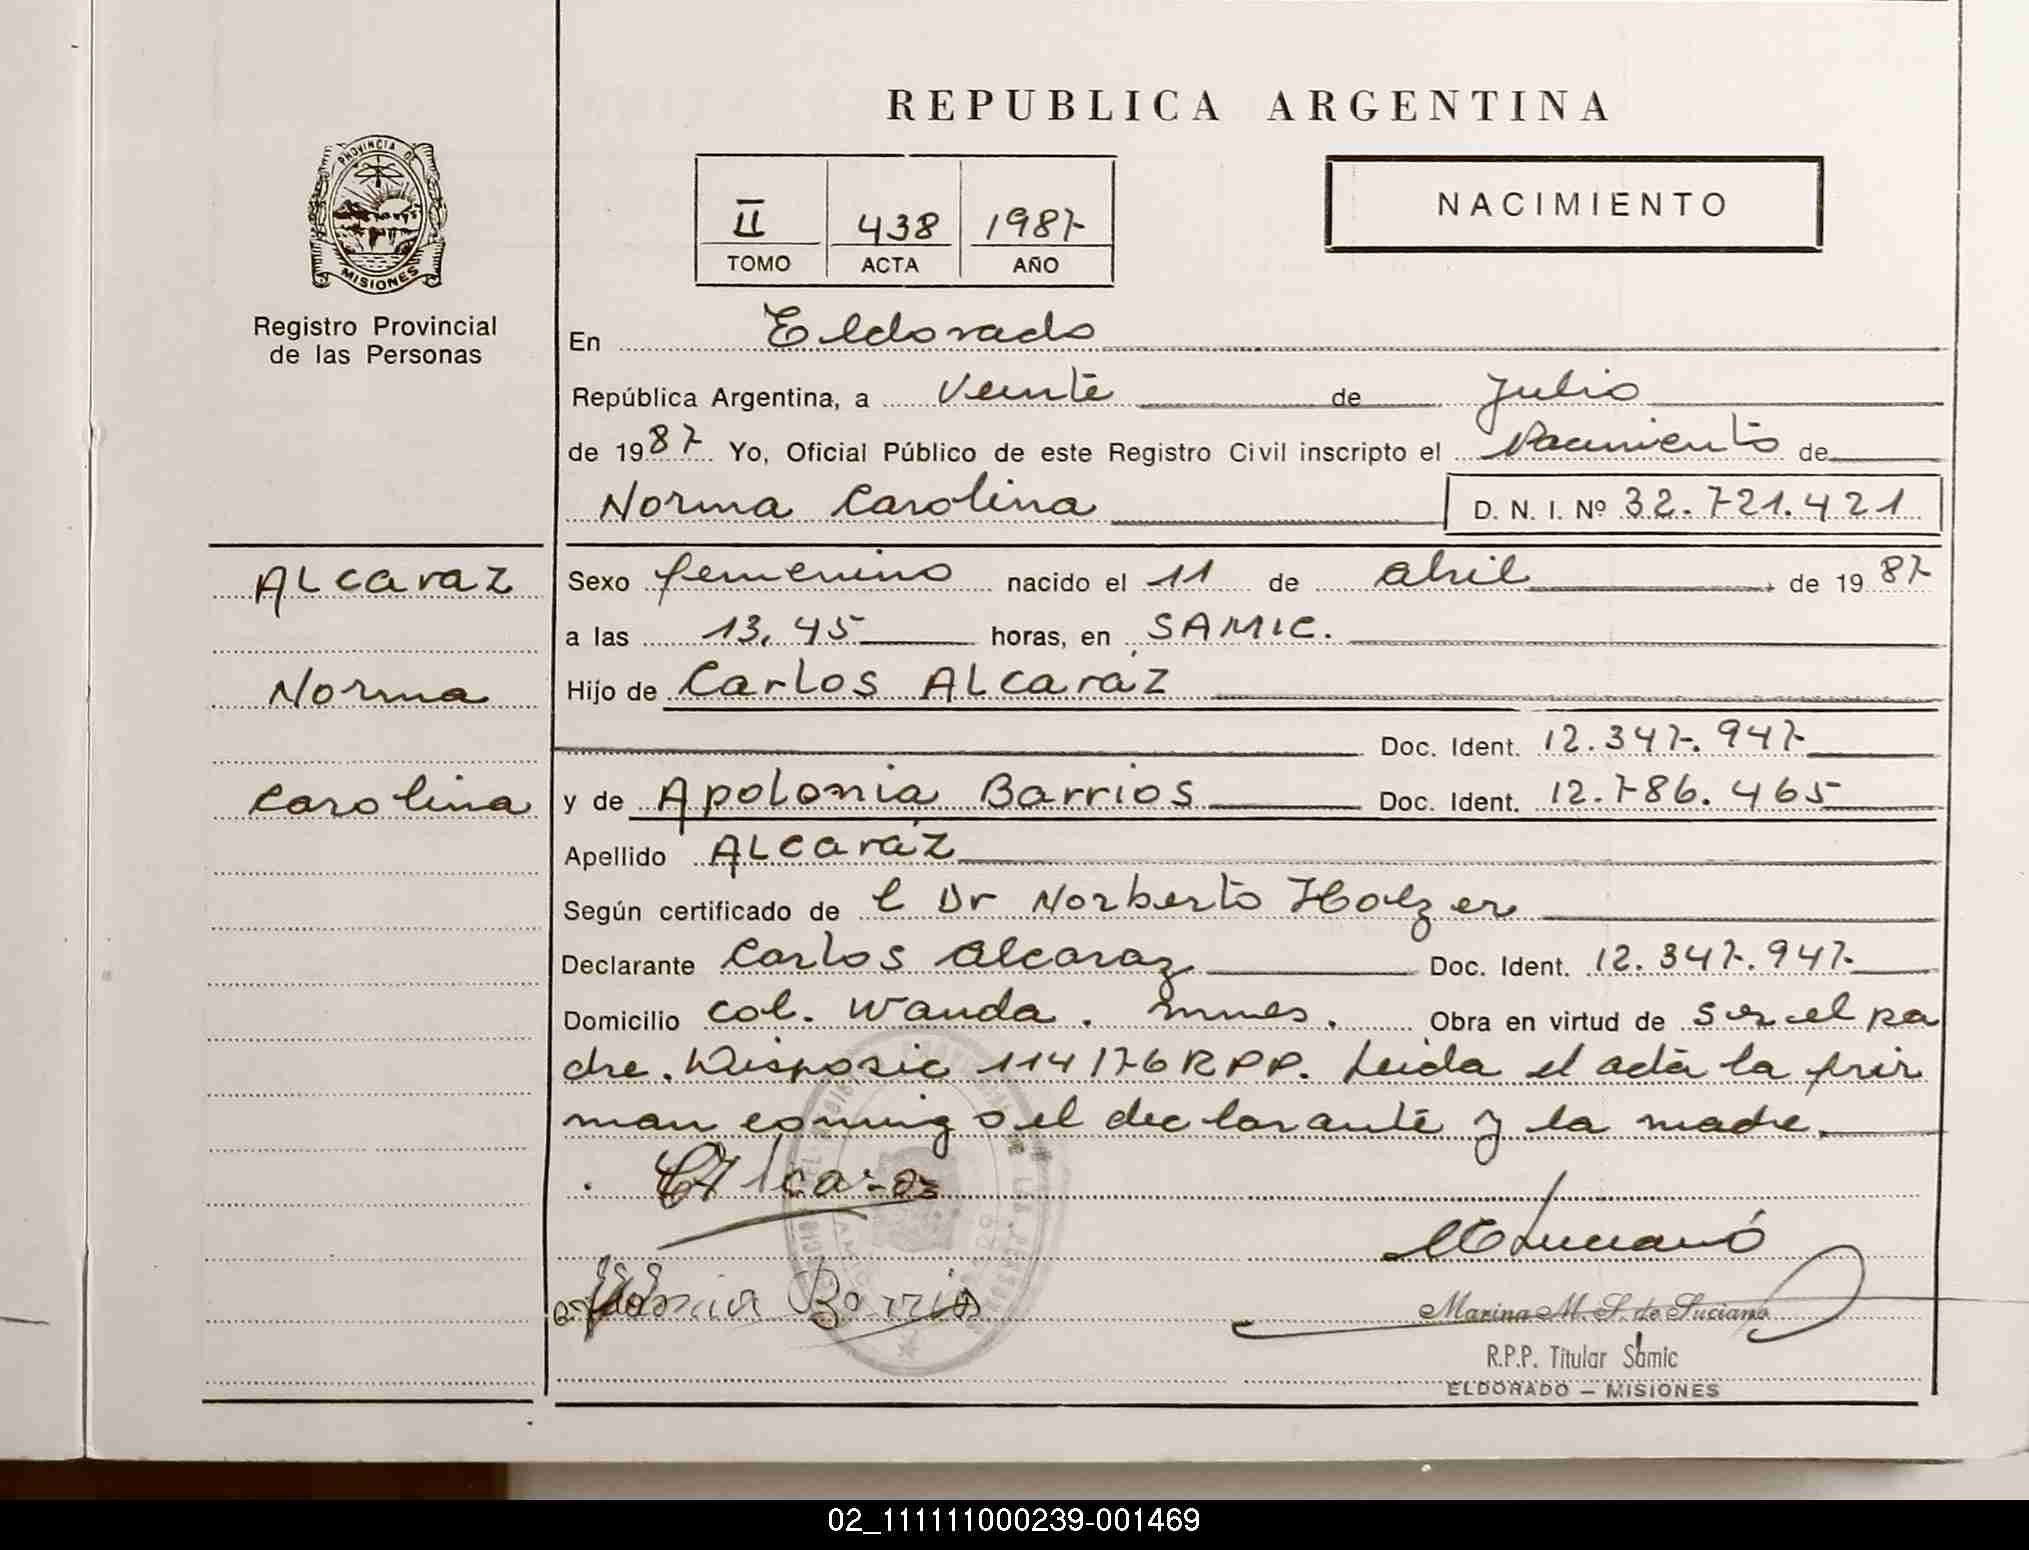 REPUBLICA ARGENTINA
PROVINCIA DE
MISIONES
Registro Provincial
de las Personas
II 438 1987
TOMO ACTA AÑO
NACIMIENTO
En Eldorado
República Argentina, a veinte de Julio
de 1987 Yo, Oficial Público de este Registro Civil inscripto el nacimiento de
Norma Carolina D. N. I. Nº 32.721.421
ALcaraz
Norma
Carolina
Sexo femenino nacido el 11 de abril de 1987
a las 13,45 horas, en SAMIC.
Hijo de Carlos ALcaráz
Doc. Ident. 12.347.947
y de Apolonia Barrios Doc. Ident. 12.786.465
Apellido ALcaráz
Según certificado de l Dr Norberto Holzer
Declarante Carlos Alcaraz Doc. Ident. 12.347.947
Domicilio Col. Wanda. Mnes. Obra en virtud de ser el pa
dre. Disposic 114/76 RPP. Leida el acta la fir
man conmigo el declarante y la madre.
Barrios
Marina M. S. de Luciano
R.P.P. Titular Samic
ELDORADO — MISIONES
02_111111000239-001469